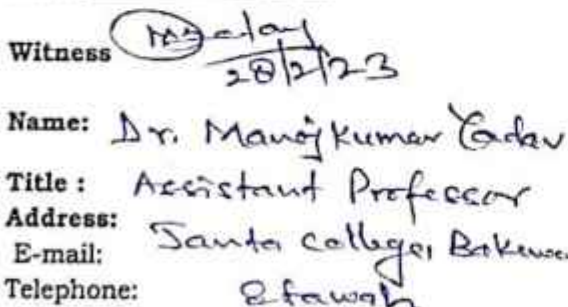 Witness
28/2/23
Name: Dr. Manoj Kumar Yadav
Title : Assistant Professor
Address: Janta College, Bakewar
E-mail:
Telephone: Etawah